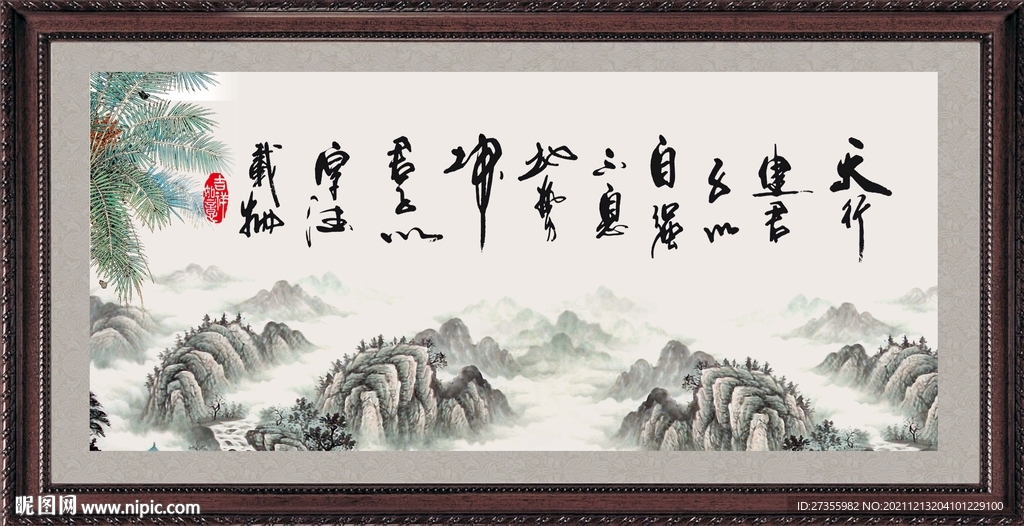 天行
建君
子以
自強
不息
地勢
坤
君子以
厚德
載物
吉祥
如意
昵图网 www.nipic.com
ID:27355982 NO:20211213204101229100